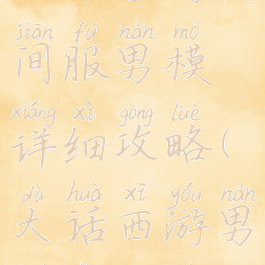 jiān fú nán mó
间服男模
xiáng xì gōng lüè
详细攻略(
dà huà xī yóu nán
大话西游男